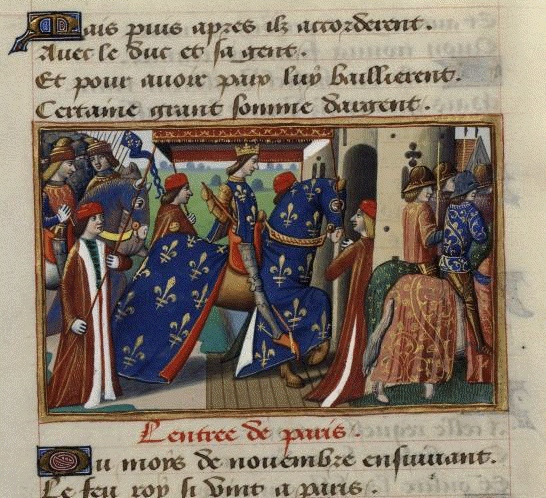 Mais puis apres ilz accorderent.
Avec le duc et sa gent.
Et pour avoir paix luy baillierent.
Certaine grant somme dargent.
Lentree de paris.
Ou moys de novembre ensuivant.
Le feu roy si vint a paris.